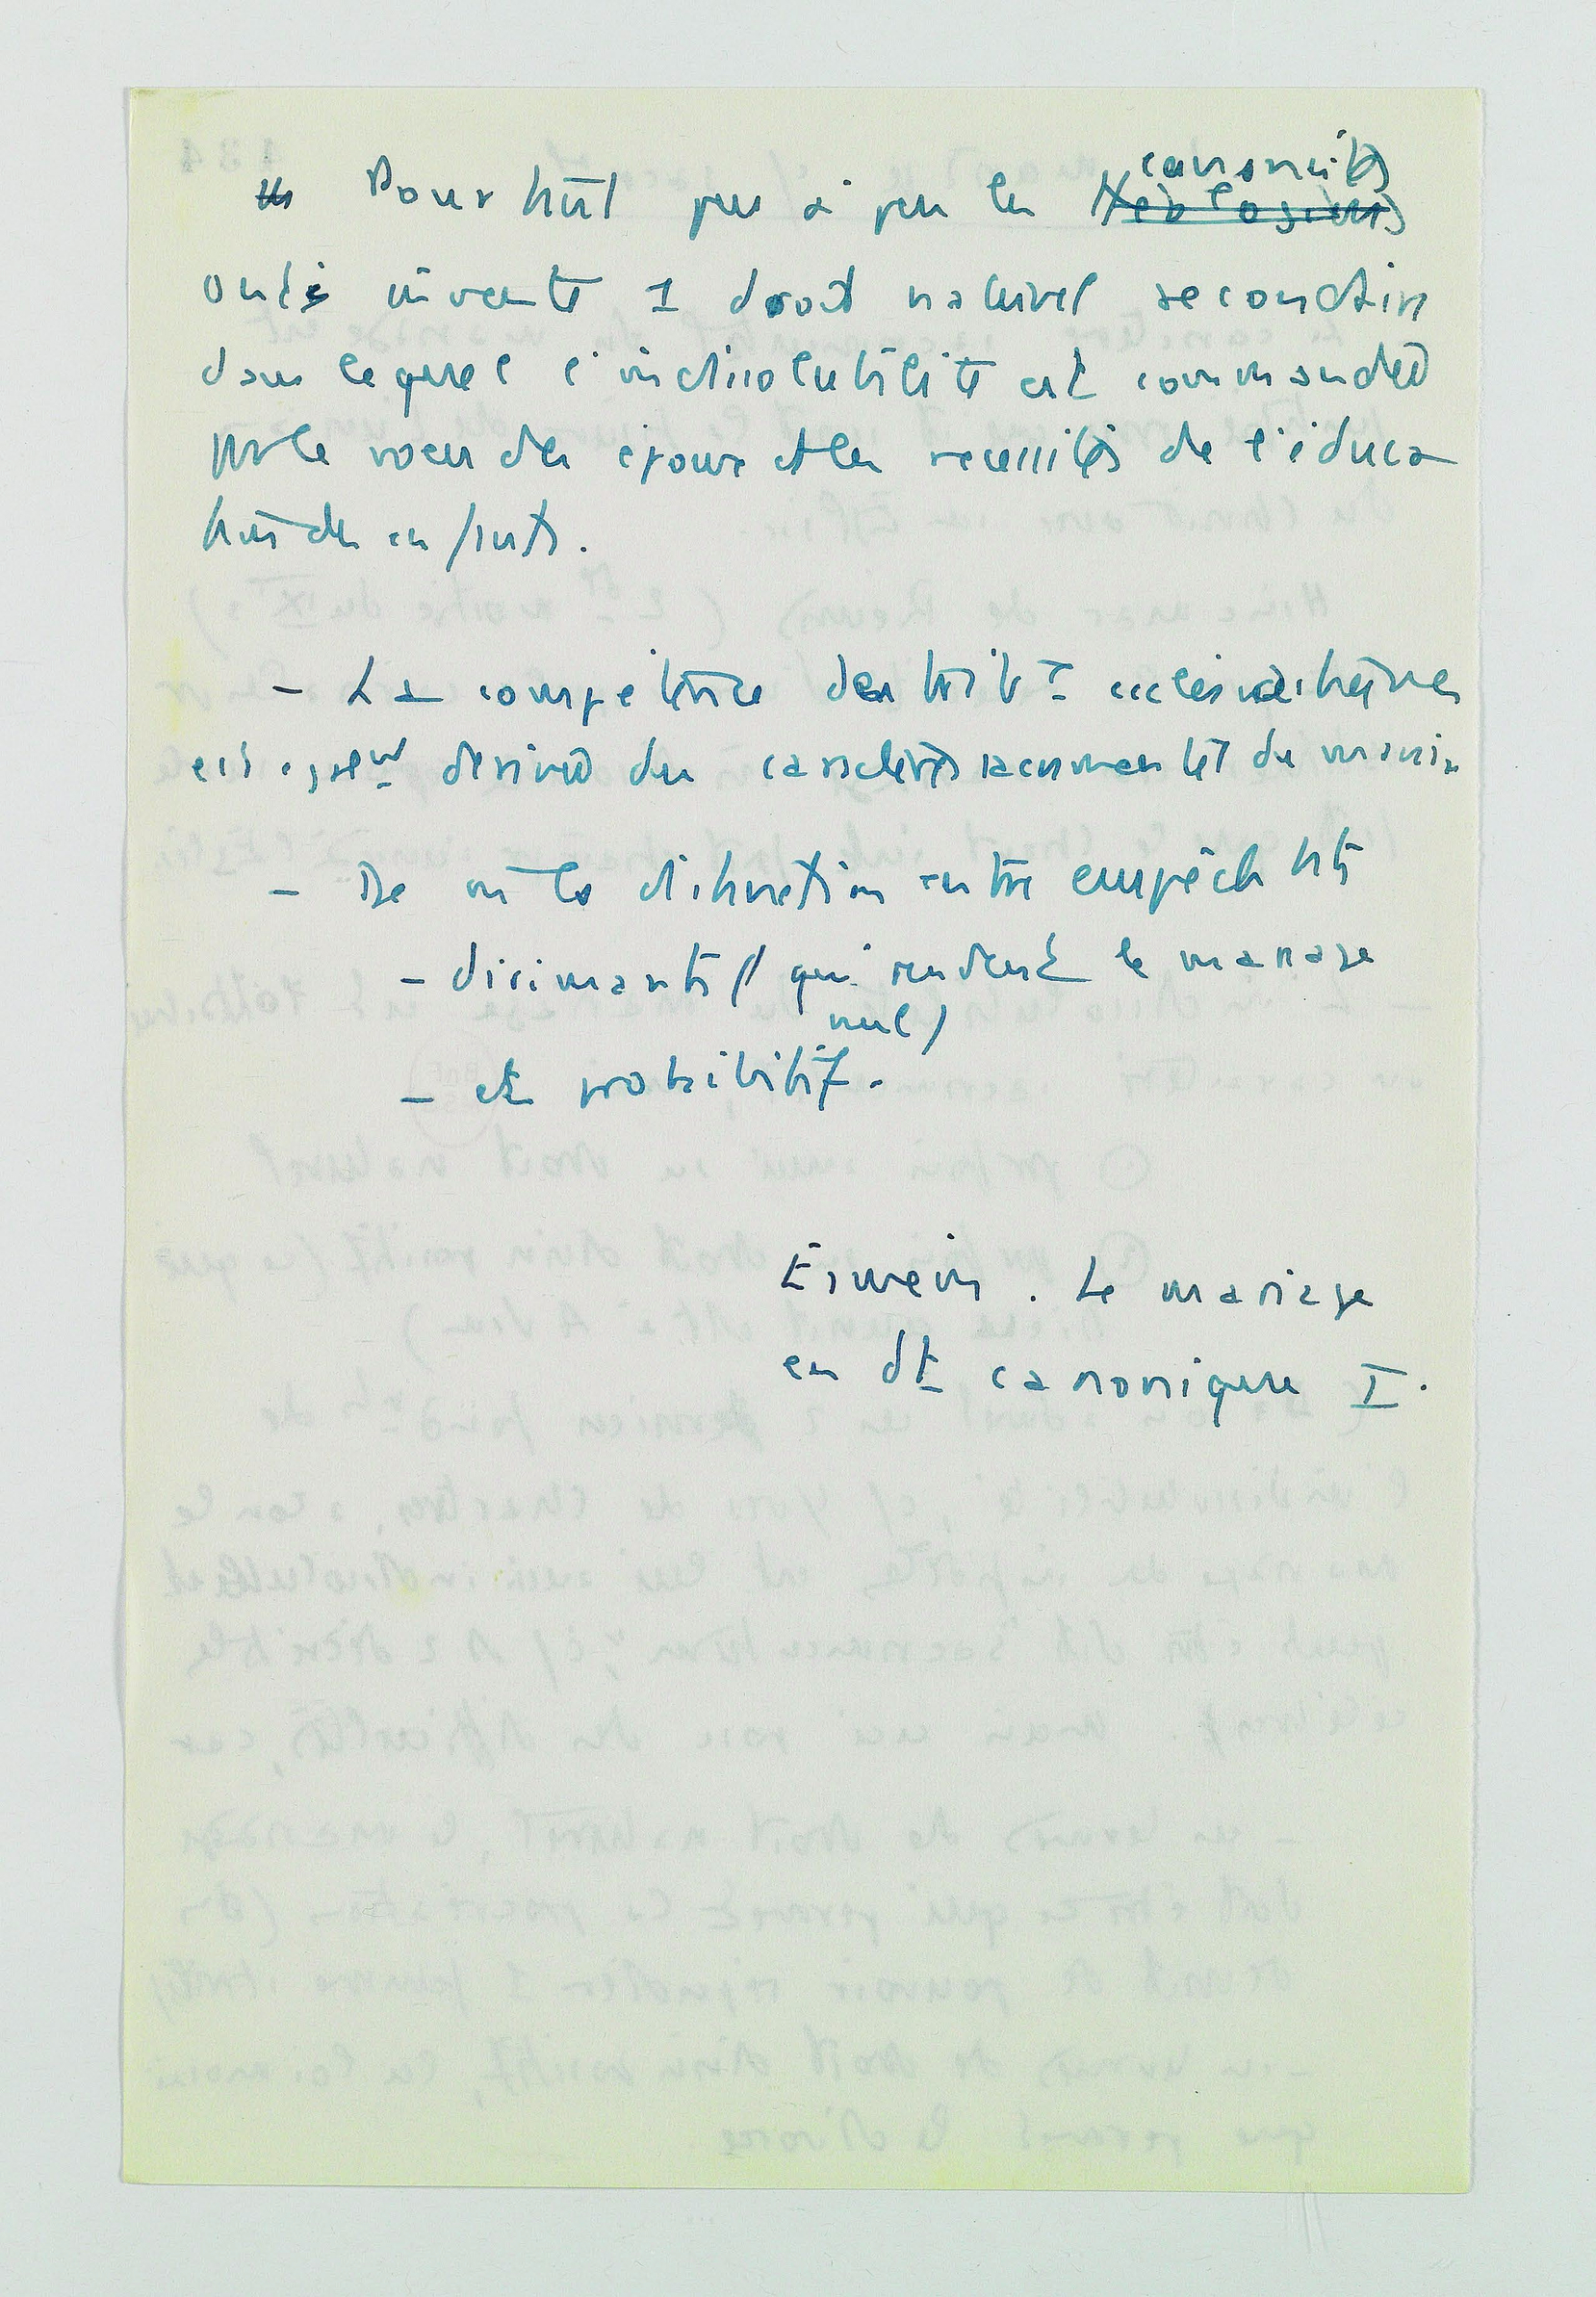 canonistes
Pourtant peu à peu les théologiens
ont inventé 1 droit naturel secondaire
dans lequel l'indissolubilité est commandée
par le vœu des époux et les nécessités de l'éduca
tion des enfants.
- La compétence des trib ecclésiastiques
est dérivée du caractère sacramentel du
- De où la distinction entre empêchts
- dirimants (qui rendent le mariage
nul)
- et prohibitifs.
Esmein. Le mariage
en dt canonique I.